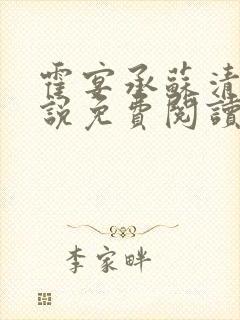 霍宴承蘇清
說免費閱讀
李家畔